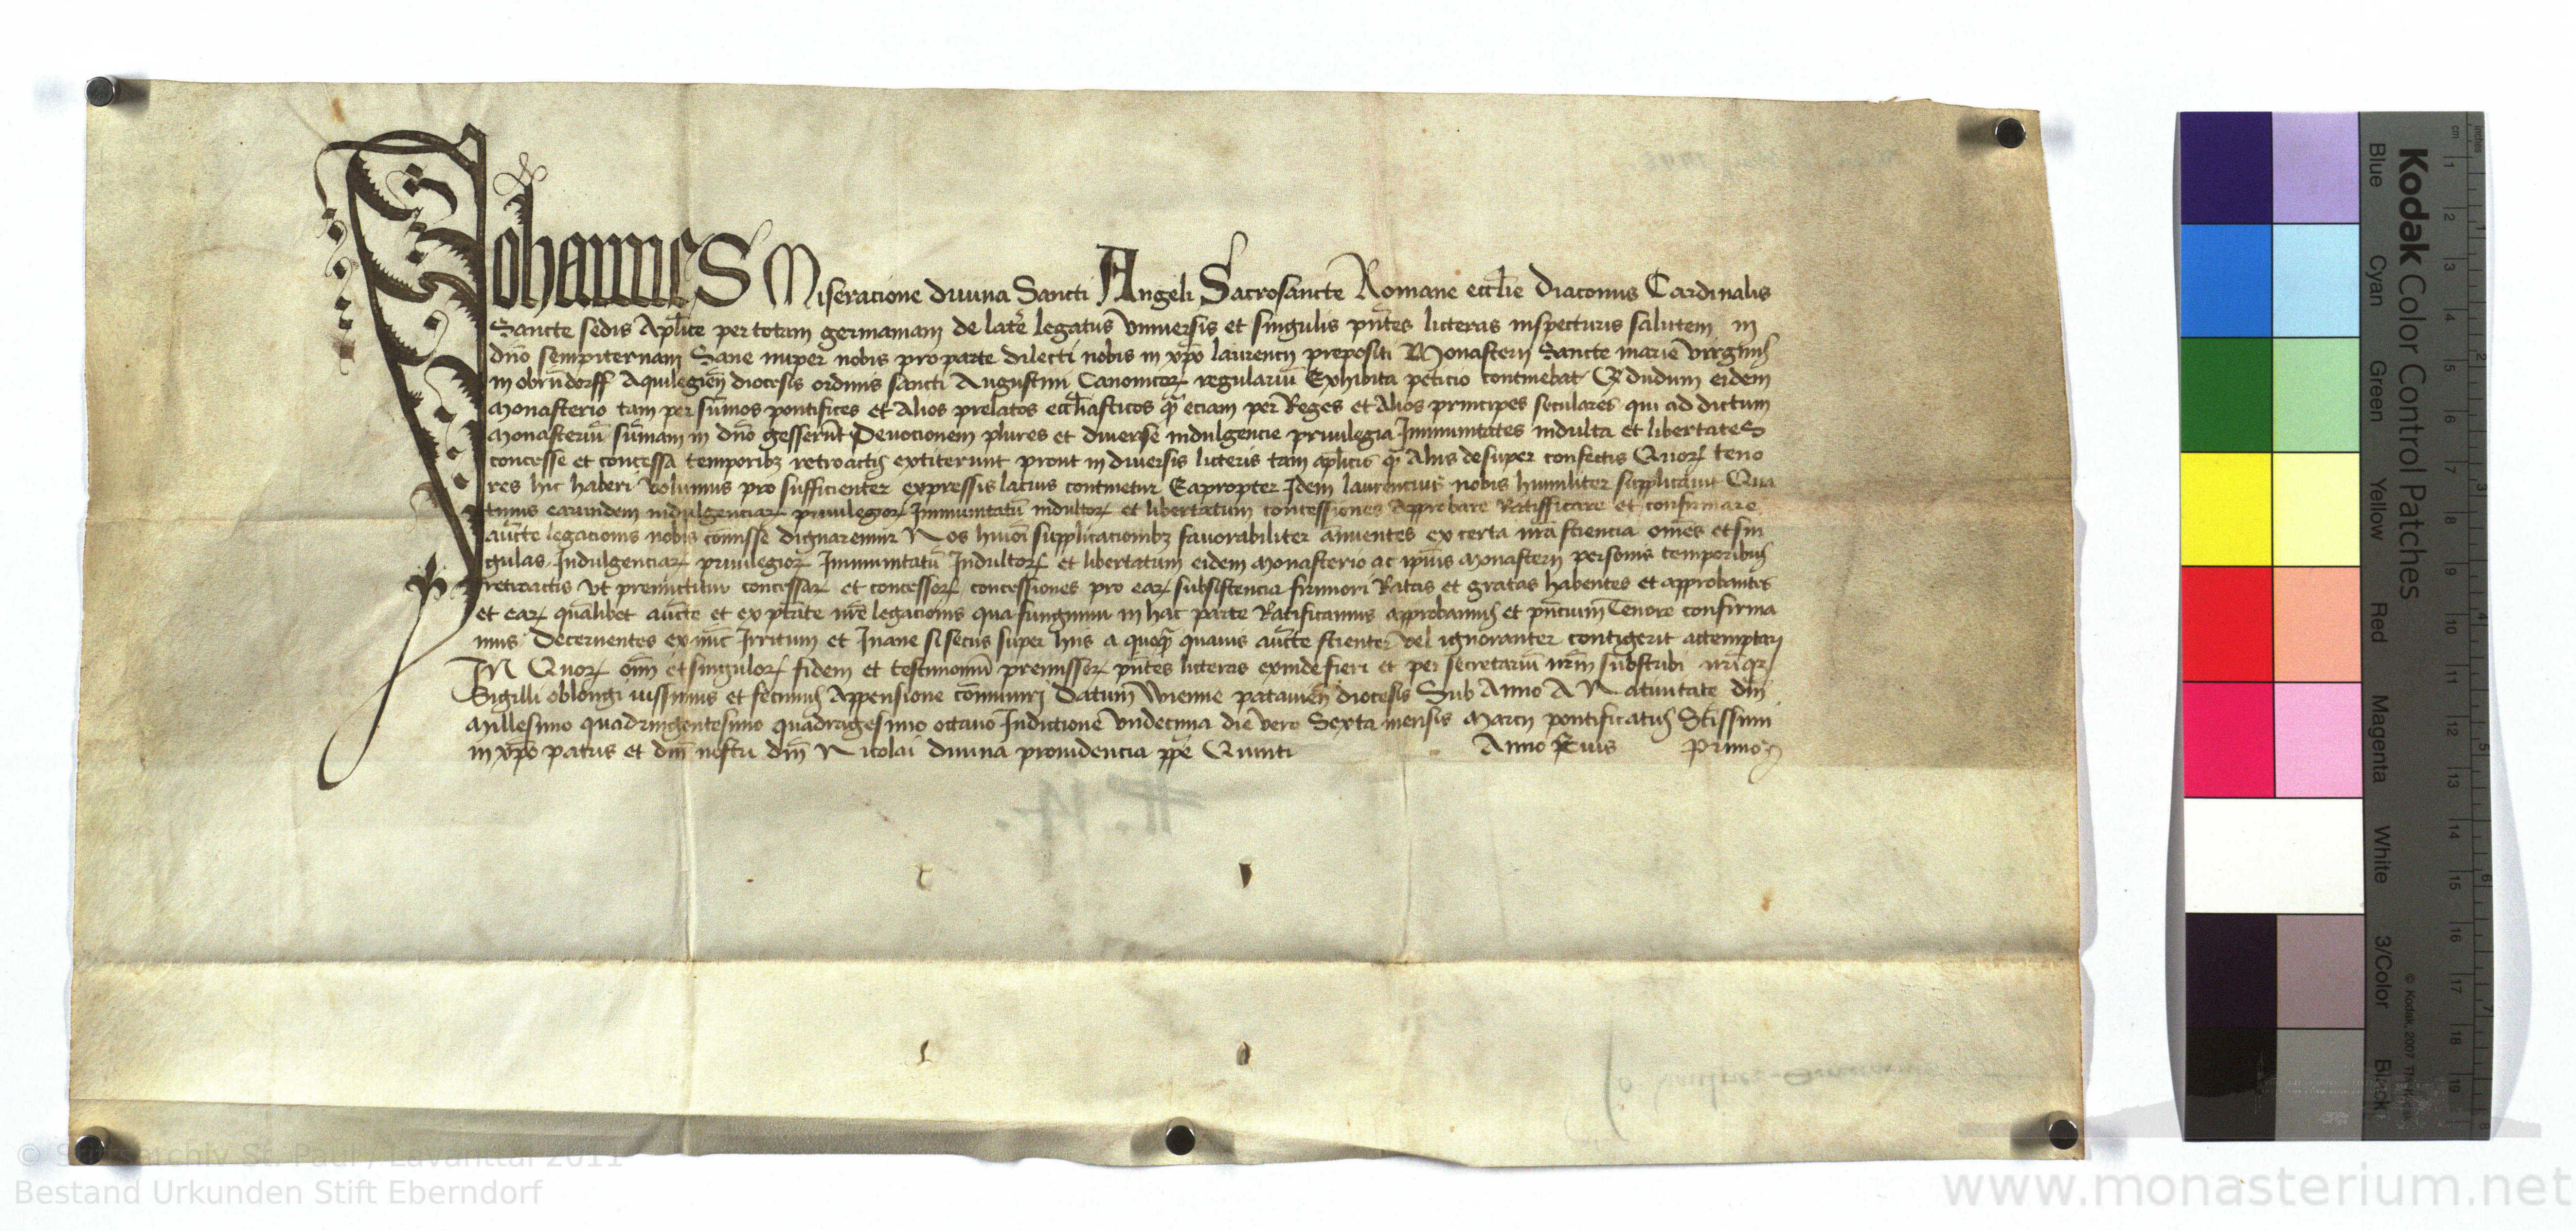 Johannes Miseracione diuina Sancti Angeli Sacrosancte Romane eccl̄ie Diaconus Cardinalis
Sancte sedis Apl̄ice per totam germaniam de late͛ legatus Vniuersis et singulis pn̄tes licteras inspecturis salutem in
dn̄o sempiternam Sane nuper nobis pro parte dilecti nobis in xp̄o laurencij prepositi Monasterij Sancte marie virginis
in obrn̄dorff Aquilegien̄ diocesis ordinis sancti Augustini Canonicoꝝ regulariū Exhibita peticio continebat Qꝫ dudum eidem
Monasterio tam per sūmos pontifices et Alios prelatos eccl̄iasticos qͣ eciam per Reges et Alios principes seculares qui ad dictum
Monasteriū sūmam in dn̄o gesserūt Deuocionem plures et diuerse indulgencie priuilegia Immunitates indulta et libertates
concesse et concessa temporibꝫ retroactis extiterunt prout in diuersis licteris tam aplicis qͣ Aliis desuper confectis Quoꝝ teno
res hic haberi volumus pro sufficienter expressis lacius continetur Eapropter Idem laurencius nobis humiliter supplicauit Qua
tinus earundem indulgenciaꝝ priuilegioꝝ Immunitatū indultoꝝ et libertatum concessiones Approbare Ratifficare et confirmare
auc̄te legacionis nobis cōmisse dignaremur Nos hmōi supplicacionibꝫ fauorabiliter ān̄uentes ex certa nr̄a sciencia om̄es et sin
gulas Indulgenciaꝝ priuilegioꝝ Immunitatū Indultoꝝ et libertatum eidem Monasterio ac ip̄ius Monasterij personis temporibus
retroactis vt premictitur concessaꝝ et concessoꝝ concessiones pro eaꝝ subsistencia firmiori Ratas et gratas habentes et approbantes
et eaꝝ quālibet auc̄te et ex ptāte nr̄e legacionis qua fungimur in hac parte Ratificamus approbamus et pn̄cium Tenore confirma
mus Decernentes ex nūc Irritum et Inane si secus super hiis a quoqͣ quauis auc̄te scienter vel ignoranter contigerit attemptari
IN Quoꝝ om̄ et singuloꝝ fidem et testimoniū premissoꝝ pn̄tes licteras exinde fieri et per secretariū nr̄m subscribi nr̄iqꝫ
Sigilli oblongi iussimus et fecimus Appensione cōmuniri Datum Wienne patauien̄ diocesis Sub Anno A Natiuitate dn̄i
Millesimo quadringentesimo quadragesimo octauo Indictione vndecima die vero Sexta mensis Marcij pontificatus Sc̄issimi
in xp̄o patris et dn̄i nostri dn̄i Nicolai diuina prouidencia pp̄e Quinti Anno Eius Primo
Kodak Color Control Patches
Blue Cyan Green Yellow Red Magenta White 3/Color Black
cm 1 2 3 4 5 6 7 8 9 10 11 12 13 14 15 16 17 18 19
inches 1 2 3 4 5 6 7 8
© Stiftsarchiv St. Paul / Lavanttal 2011
Bestand Urkunden Stift Eberndorf
www.monasterium.net